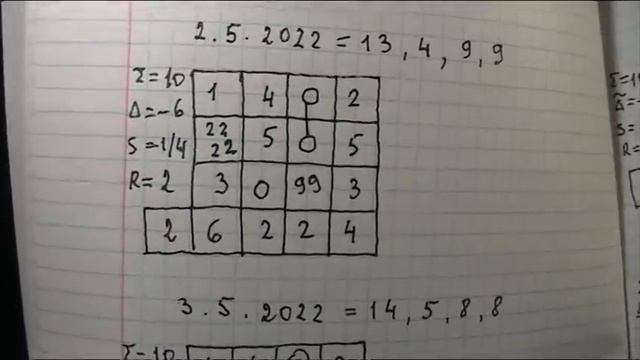 2.5.2022 = 13, 4, 9, 9
Σ=10 1 4 0 2
Δ=-6 22 22 5 0 5
S=1/4
R=2 3 0 99 3
2 6 2 2 4
3.5.2022 = 14, 5, 8, 8
Σ=10